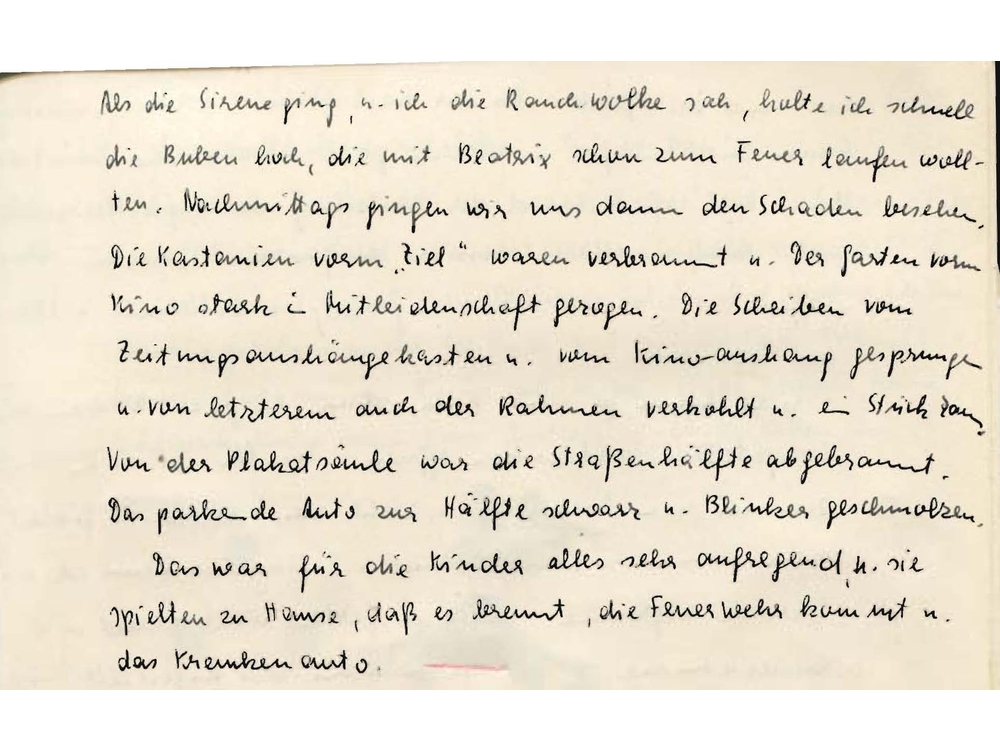 Als die Sirene ging, u. ich die Rauchwolke sah, holte ich schnell
die Buben hoch, die mit Beatrix schon zum Feuer laufen woll-
ten. Nachmittags gingen wir uns dann den Schaden besehen.
Die Kastanien vorm „Ziel“ waren verbrannt u. Der Garten vorm
Kino stark i. Mitleidenschaft gezogen. Die Scheiben vom
Zeitungsaushängekasten u. vom Kino-aushang gesprungen
u. von letzterem auch der Rahmen verkohlt u. ein Stück Zaun.
Von der Plakatsäule war die Straßenhälfte abgebrannt.
Das parkende Auto zur Hälfte schwarz u. Blinker geschmolzen.
Das war für die Kinder alles sehr aufregend, u. sie
spielten zu Hause, daß es brennt, die Feuerwehr kommt u.
das Krankenauto.